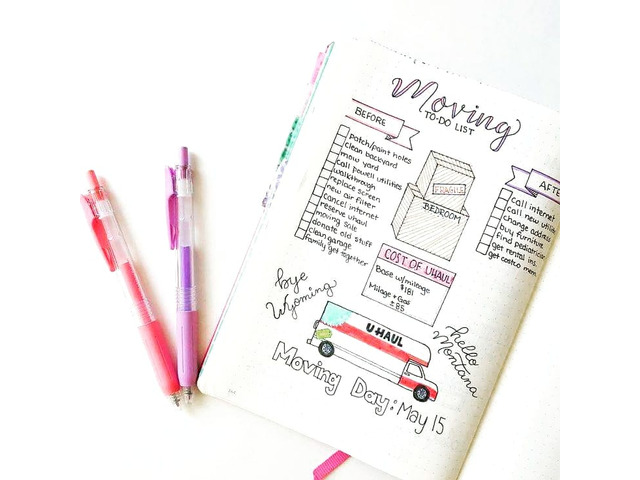 Moving
TO-DO LIST
BEFORE
patch/paint holes
clean backyard
mow yard
call powell utilities
walkthrough
replace screen
new air filter
cancel internet
reserve uhaul
moving sale
donate old stuff
clean garage
family get together
FRAGILE
BEDROOM
AFTE
call internet
call new utilitie
change address
buy furniture
find pediatrician
get rental ins.
get costco mem
COST OF UHAUL
Base w/mileage
$181
Milage + Gas
± 85
bye
Wyoming
U-HAUL
hello
Montana
Moving Day: May 15